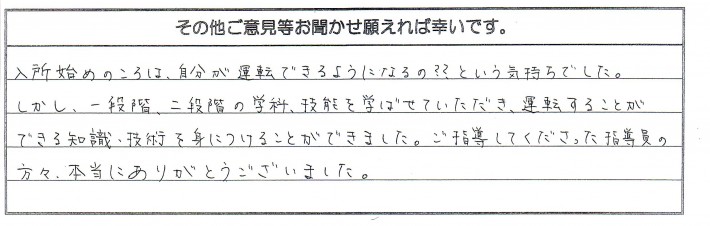 その他ご意見等お聞かせ願えれば幸いです。
入所始めのころは、自分が運転できるようになるの??という気持ちでした。
しかし、一段階、二段階の学科、技能を学ばせていただき、運転することが
できる知識・技術を身につけることができました。ご指導してくださった指導員の
方々、本当にありがとうございました。